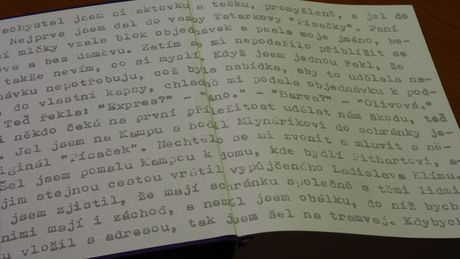 chystal jsem si aktovku a tašku, promyšleně, a jel do
Nejprve jsem dal do vazby Tatarkovy "Písačky". Paní
mlčky vzala blok objednávek a psala moje jméno, be-
va a bez úsměvu. Zatím se mi nepodařilo přiblížit se
takže nevím, co si myslí. Když jsem jednou řekl, že
návku nepotřebuju, což byla nabídka, aby to udělala na-
do vlastní kapsy, chladně mi podala objednávku k pod-
Teď řekla: "Expres?" - "Ano." - "Barva?" - "Olivová."
i někdo čeká na první příležitost udělat nám škodu, teď
. Jel jsem na Kampu a hodil Mlynárikovi do schránky je-
iginál "Písaček". Nechtělo se mi zvonit a mluvit s ně-
Šel jsem pomalu Kampou k domu, kde bydlí Pithartovi, a
jim stejnou cestou vrátil vypůjčeného Ladislava Klímu.
jsem zjistil, že mají schránku společně s těmi lidmi
nimi mají i záchod, a neměl jsem obálku, do níž bych
u vložil s adresou, tak jsem šel na tramvaj. Kdybych